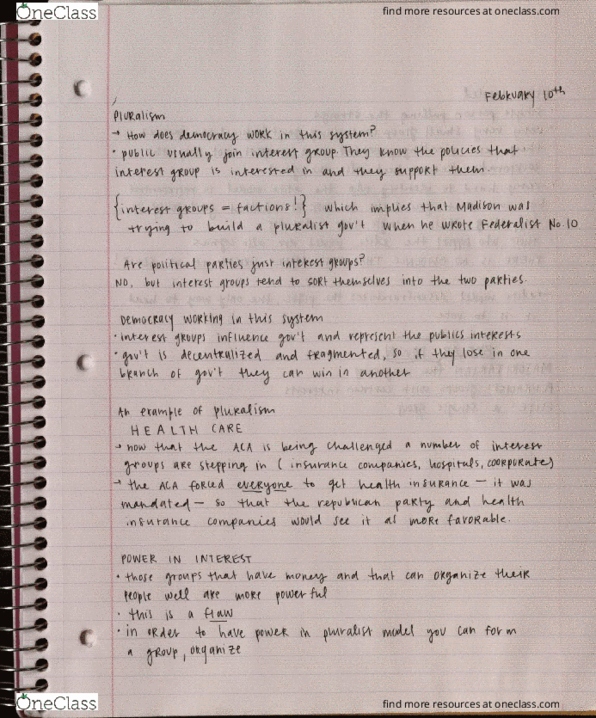 OneClass
find more resources at oneclass.com
February 10th
Pluralism
→ How does democracy work in this system?
• public usually join interest group. They know the policies that
interest group is interested in and they support them.
{interest groups = factions!} which implies that Madison was
trying to build a pluralist gov't when he wrote Federalist No. 10
Are political parties just interest groups?
NO, but interest groups tend to sort themselves into the two parties.
Democracy working in this system
• interest groups influence gov't and represent the publics interests
• gov't is decentralized and fragmented, so if they lose in one
branch of gov't they can win in another
An example of pluralism
HEALTH CARE
→ now that the ACA is being challenged a number of interest
groups are stepping in (insurance companies, hospitals, coorporate)
→ the ACA forced everyone to get health insurance — it was
mandated — so that the republican party and health
insurance companies would see it as more favorable.
POWER IN INTEREST
• those groups that have money and that can organize their
people well are more powerful
• this is a flaw
• in order to have power in pluralist model you can form
a group, organize
OneClass
find more resources at oneclass.com